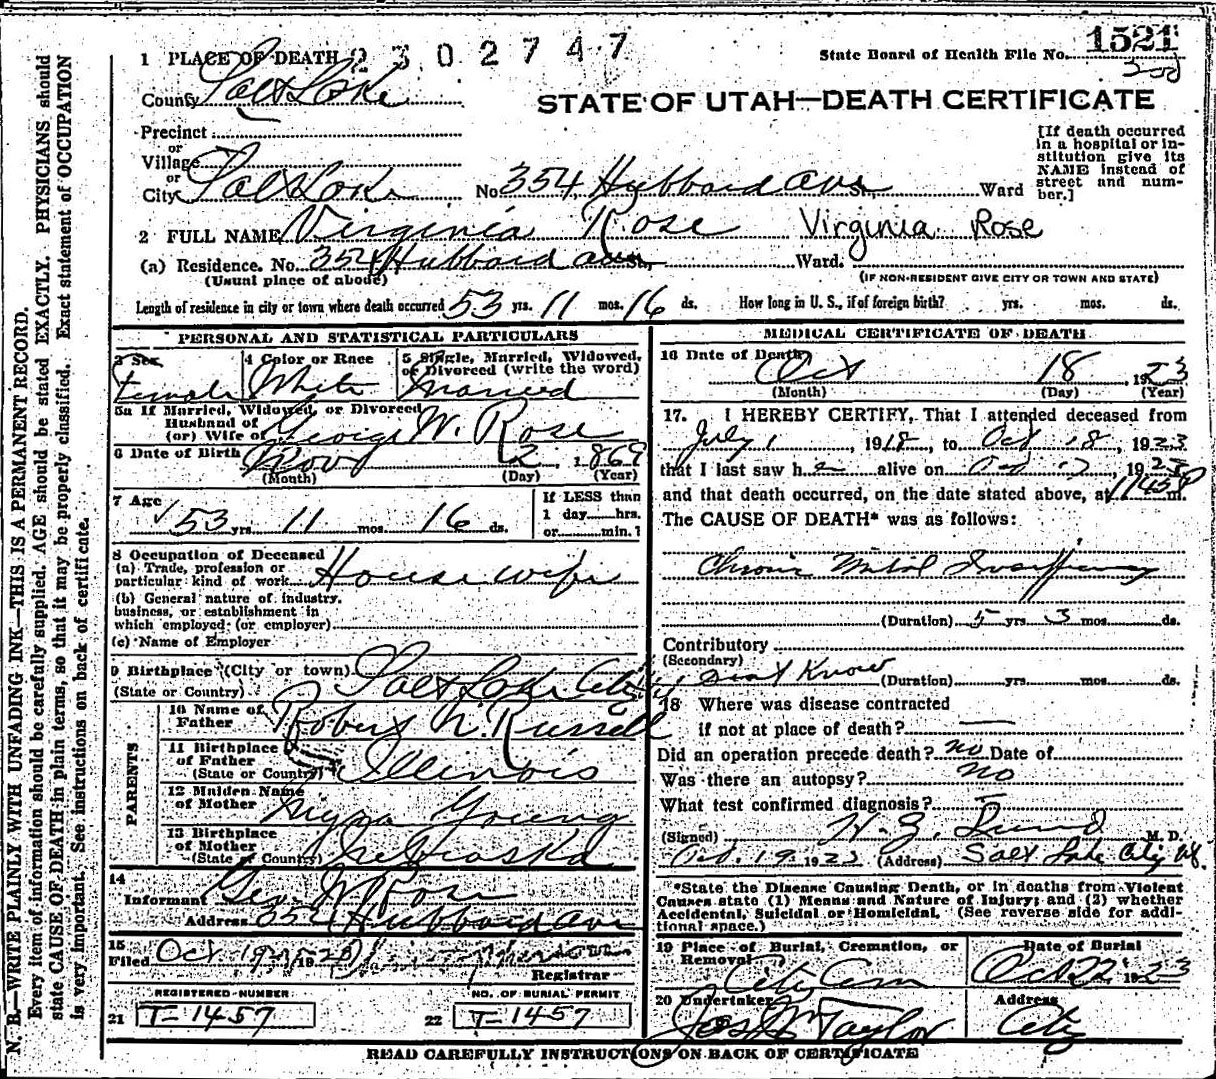 1 PLACE OF DEATH 2302747
State Board of Health File No. 1521
County Salt Lake
STATE OF UTAH—DEATH CERTIFICATE
Precinct
or
Village
or
City Salt Lake No. 354 Hubbard ave Ward
[If death occurred
in a hospital or in-
stitution give its
NAME instead of
street and num-
ber.]
2 FULL NAME Virginia Rose Virginia Rose
(a) Residence. No. 354 Hubbard ave St., Ward.
(Usual place of abode) (IF NON-RESIDENT GIVE CITY OR TOWN AND STATE)
Length of residence in city or town where death occurred 53 yrs. 11 mos. 16 ds. How long in U. S., if of foreign birth? yrs. mos. ds.
PERSONAL AND STATISTICAL PARTICULARS
3 Sex 4 Color or Race 5 Single, Married, Widowed,
or Divorced (write the word)
Female White Married
5a If Married, Widowed, or Divorced
Husband of
(or) Wife of George W. Rose
6 Date of Birth Nov 2 1869
(Month) (Day) (Year)
7 Age 53 yrs. 11 mos. 16 ds.
If LESS than
1 day hrs.
or min.?
8 Occupation of Deceased
(a) Trade, profession or
particular kind of work House wife
(b) General nature of industry,
business, or establishment in
which employed (or employer)
(c) Name of Employer
9 Birthplace (City or town) Salt Lake City
(State or Country)
PARENTS
10 Name of
Father Robert N. Russell
11 Birthplace
of Father
(State or Country) Illinois
12 Maiden Name
of Mother Young
13 Birthplace
of Mother
(State or Country) Nebraska
14
Informant Geo W Rose
Address 354 Hubbard ave
15
Filed Oct 19 1923
Registrar
REGISTERED NUMBER NO. OF BURIAL PERMIT
21 T-1457 22 T-1457
MEDICAL CERTIFICATE OF DEATH
16 Date of Death
Oct 18, 1923
(Month) (Day) (Year)
17. I HEREBY CERTIFY, That I attended deceased from
July 1, 1918, to Oct 18, 1923
that I last saw h alive on Oct 17, 1923
and that death occurred, on the date stated above, at 1145P m.
The CAUSE OF DEATH* was as follows:
Chronic Mitral Insufficiency
(Duration) 5 yrs. 3 mos. ds.
Contributory
(Secondary) Dont Know (Duration) yrs. mos. ds.
18 Where was disease contracted
if not at place of death?
Did an operation precede death? no Date of
Was there an autopsy? no
What test confirmed diagnosis?
(Signed) M. D.
Oct. 19. 1923 (Address) Salt Lake City Ut.
*State the Disease Causing Death, or in deaths from Violent
Causes state (1) Means and Nature of Injury; and (2) whether
Accidental, Suicidal or Homicidal. (See reverse side for addi-
tional space.)
19 Place of Burial, Cremation, or
Removal Date of Burial
City Cem Oct 22 1923
20 Undertaker Address
Jos Wm Taylor City
READ CAREFULLY INSTRUCTIONS ON BACK OF CERTIFICATE
N. B.—WRITE PLAINLY WITH UNFADING INK—THIS IS A PERMANENT RECORD.
Every item of information should be carefully supplied. AGE should be stated EXACTLY. PHYSICIANS should
state CAUSE OF DEATH in plain terms, so that it may be properly classified. Exact statement of OCCUPATION
is very important. See instructions on back of certificate.